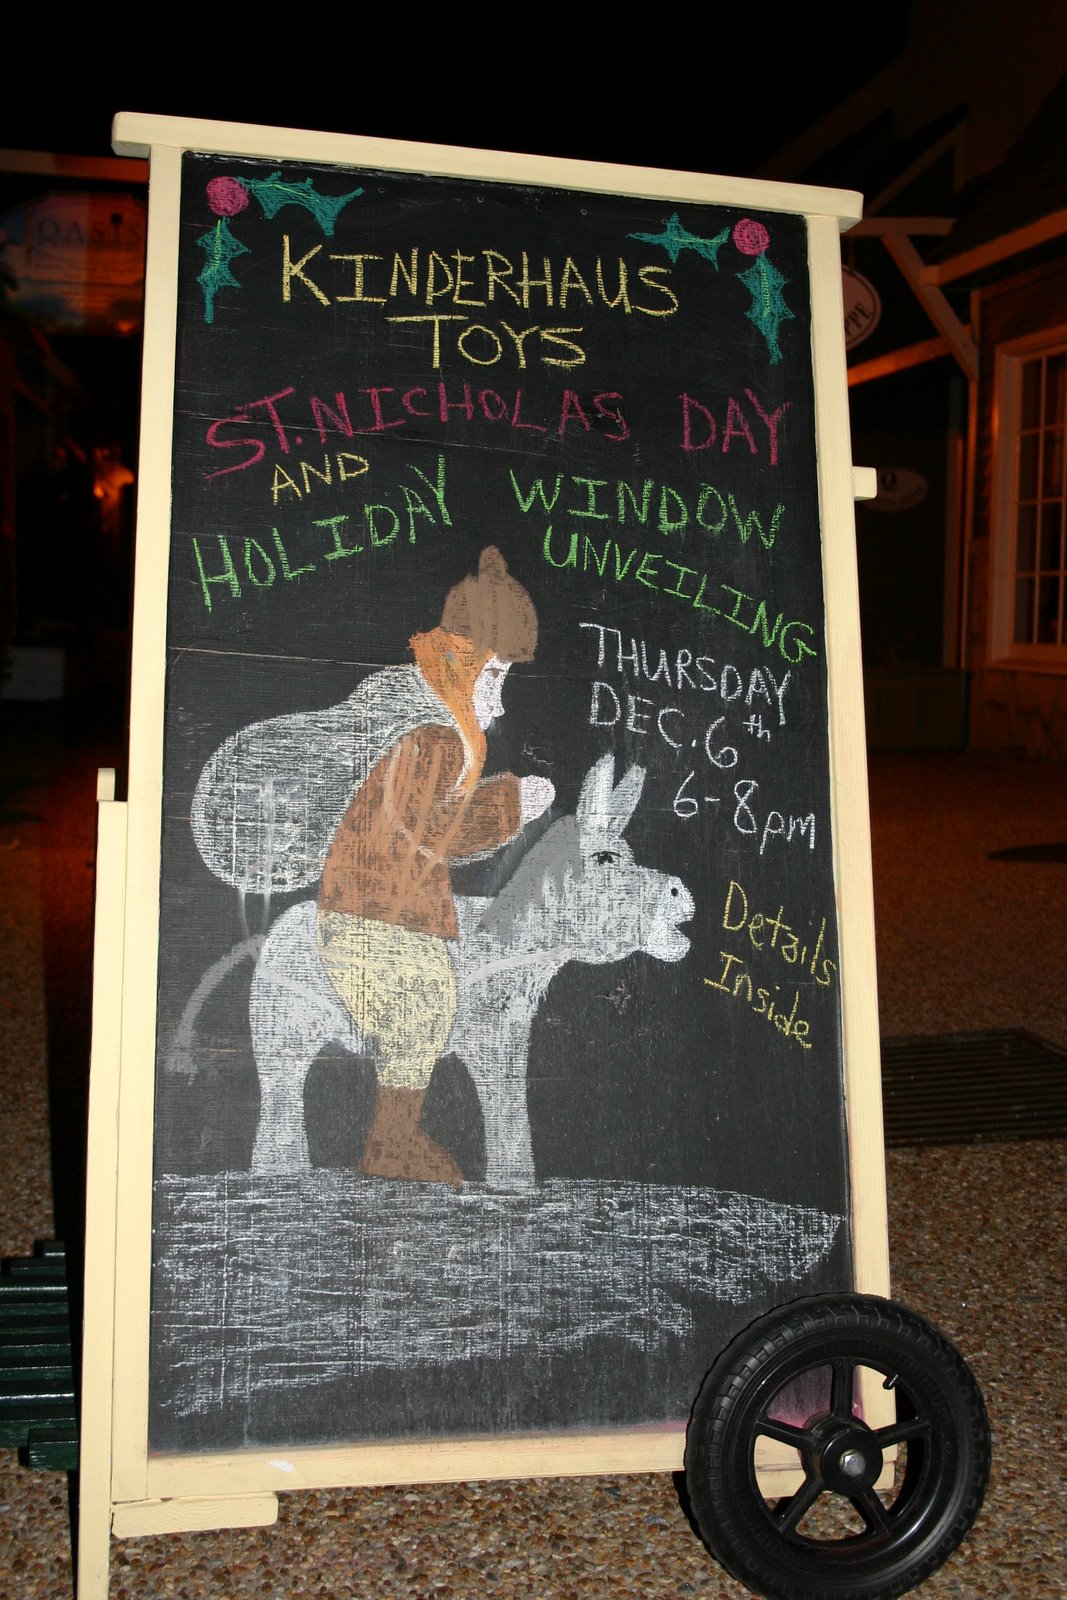 KINDERHAUS
TOYS
ST. NICHOLAS DAY
AND
HOLIDAY WINDOW
UNVEILING
THURSDAY
DEC. 6th
6-8pm
Details
Inside
OASIS